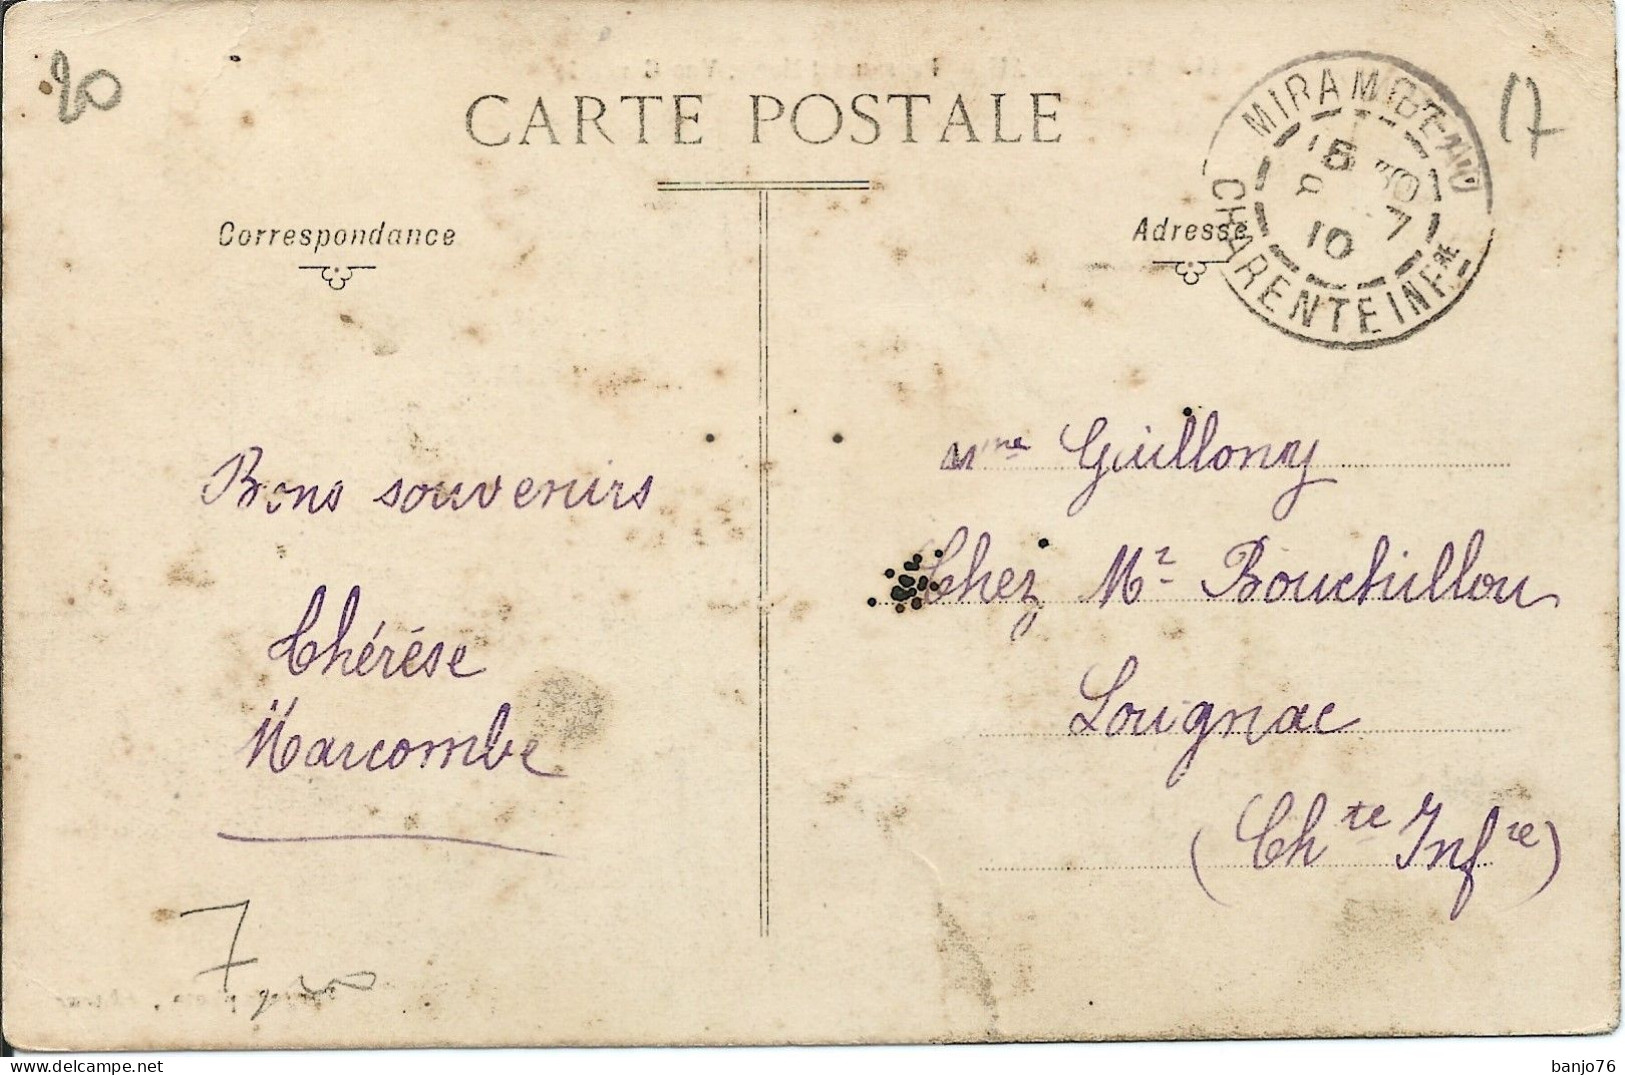 20
17
CARTE POSTALE
Correspondance
Adresse
MIRAMBEAU
CHARENTE INFRE
10
7
Bons souvenirs
Thérèse
Marcombe
Mme Guillony
Chez Mr Bouchillou
Lougnac
(Chte Infre)
7
banjo76